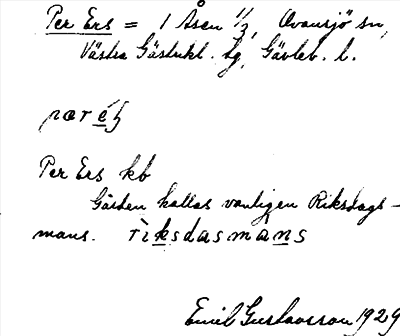 Per Ers = 1 Åsen 1/2, Ovansjö sn,
Västra Gästrikl. tg, Gävleb. l.
pær éʂ
Per Ers kb
Gården kallas vanligen Riksdags-
mans. rìksdasmans
Emil Gustavsson 1929